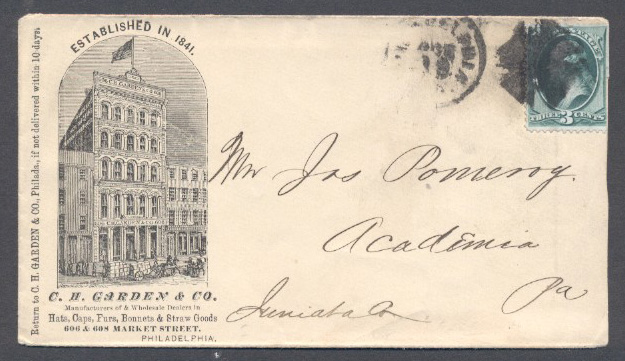 ESTABLISHED IN 1841.
Return to C. H. GARDEN & CO., Philada., if not delivered within 10 days.
C. H. GARDEN & CO.
Manufacturers of & Wholesale Dealers in
Hats, Caps, Furs, Bonnets & Straw Goods
606 & 608 MARKET STREET,
PHILADELPHIA.
THREE 3 CENTS
Mr Jas Pomeroy.
Academia
Juniata Co
Pa